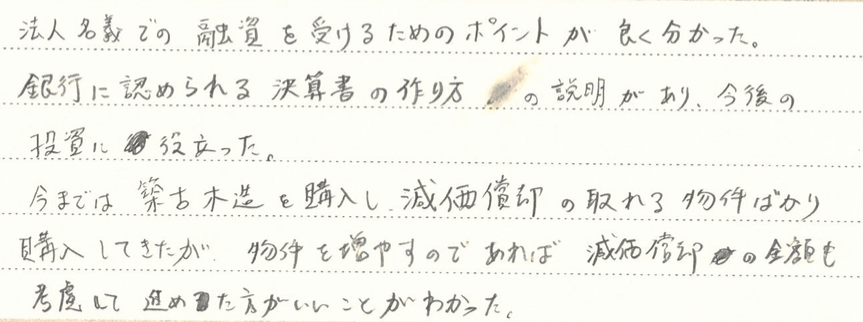 法人名義での融資を受けるためのポイントが良く分かった。
銀行に認められる決算書の作り方の説明があり、今後の
投資に役立った。
今までは築古木造を購入し、減価償却の取れる物件ばかり
購入してきたが、物件を増やすのであれば減価償却の全額も
考慮して進めた方がいいことがわかった。